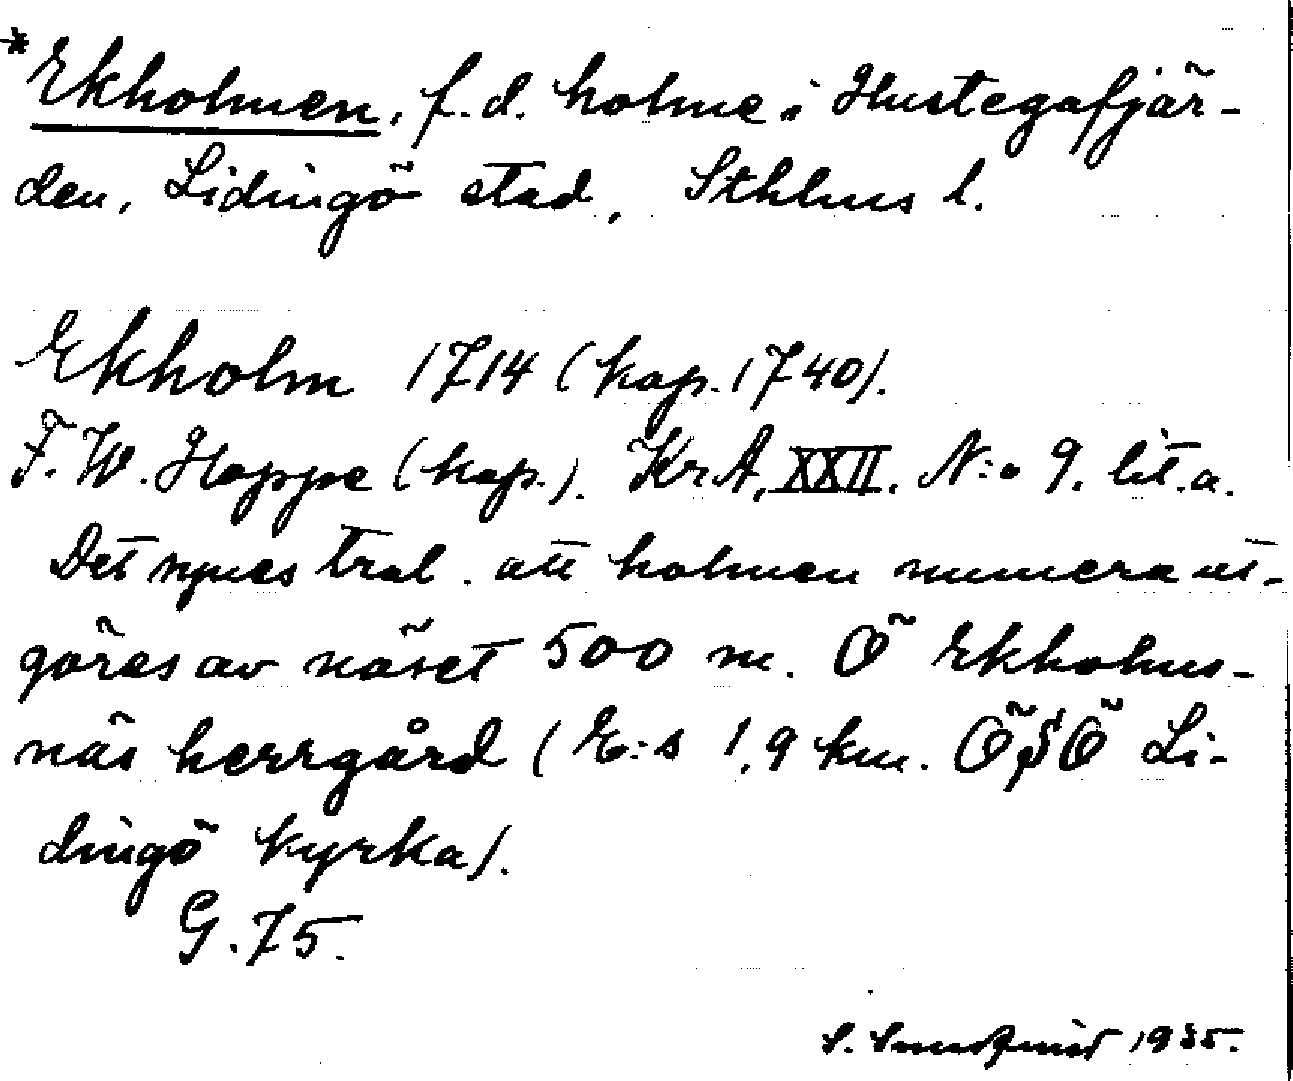 *Ekholmen, f.d. holme i Hustegafjär-
den, Lidingö stad, Sthlms l.
Ekholm 1714 (kop. 1740).
F.W. Hoppe (kop.). KrA, XXII. N:o 9. lit. a.
Det synes trol. att holmen numera ut-
göres av näset 500 m. Ö Ekholms-
näs herrgård (E:s 1,9 km. ÖSÖ Li-
dingö kyrka).
G. 75.
S. 1935.